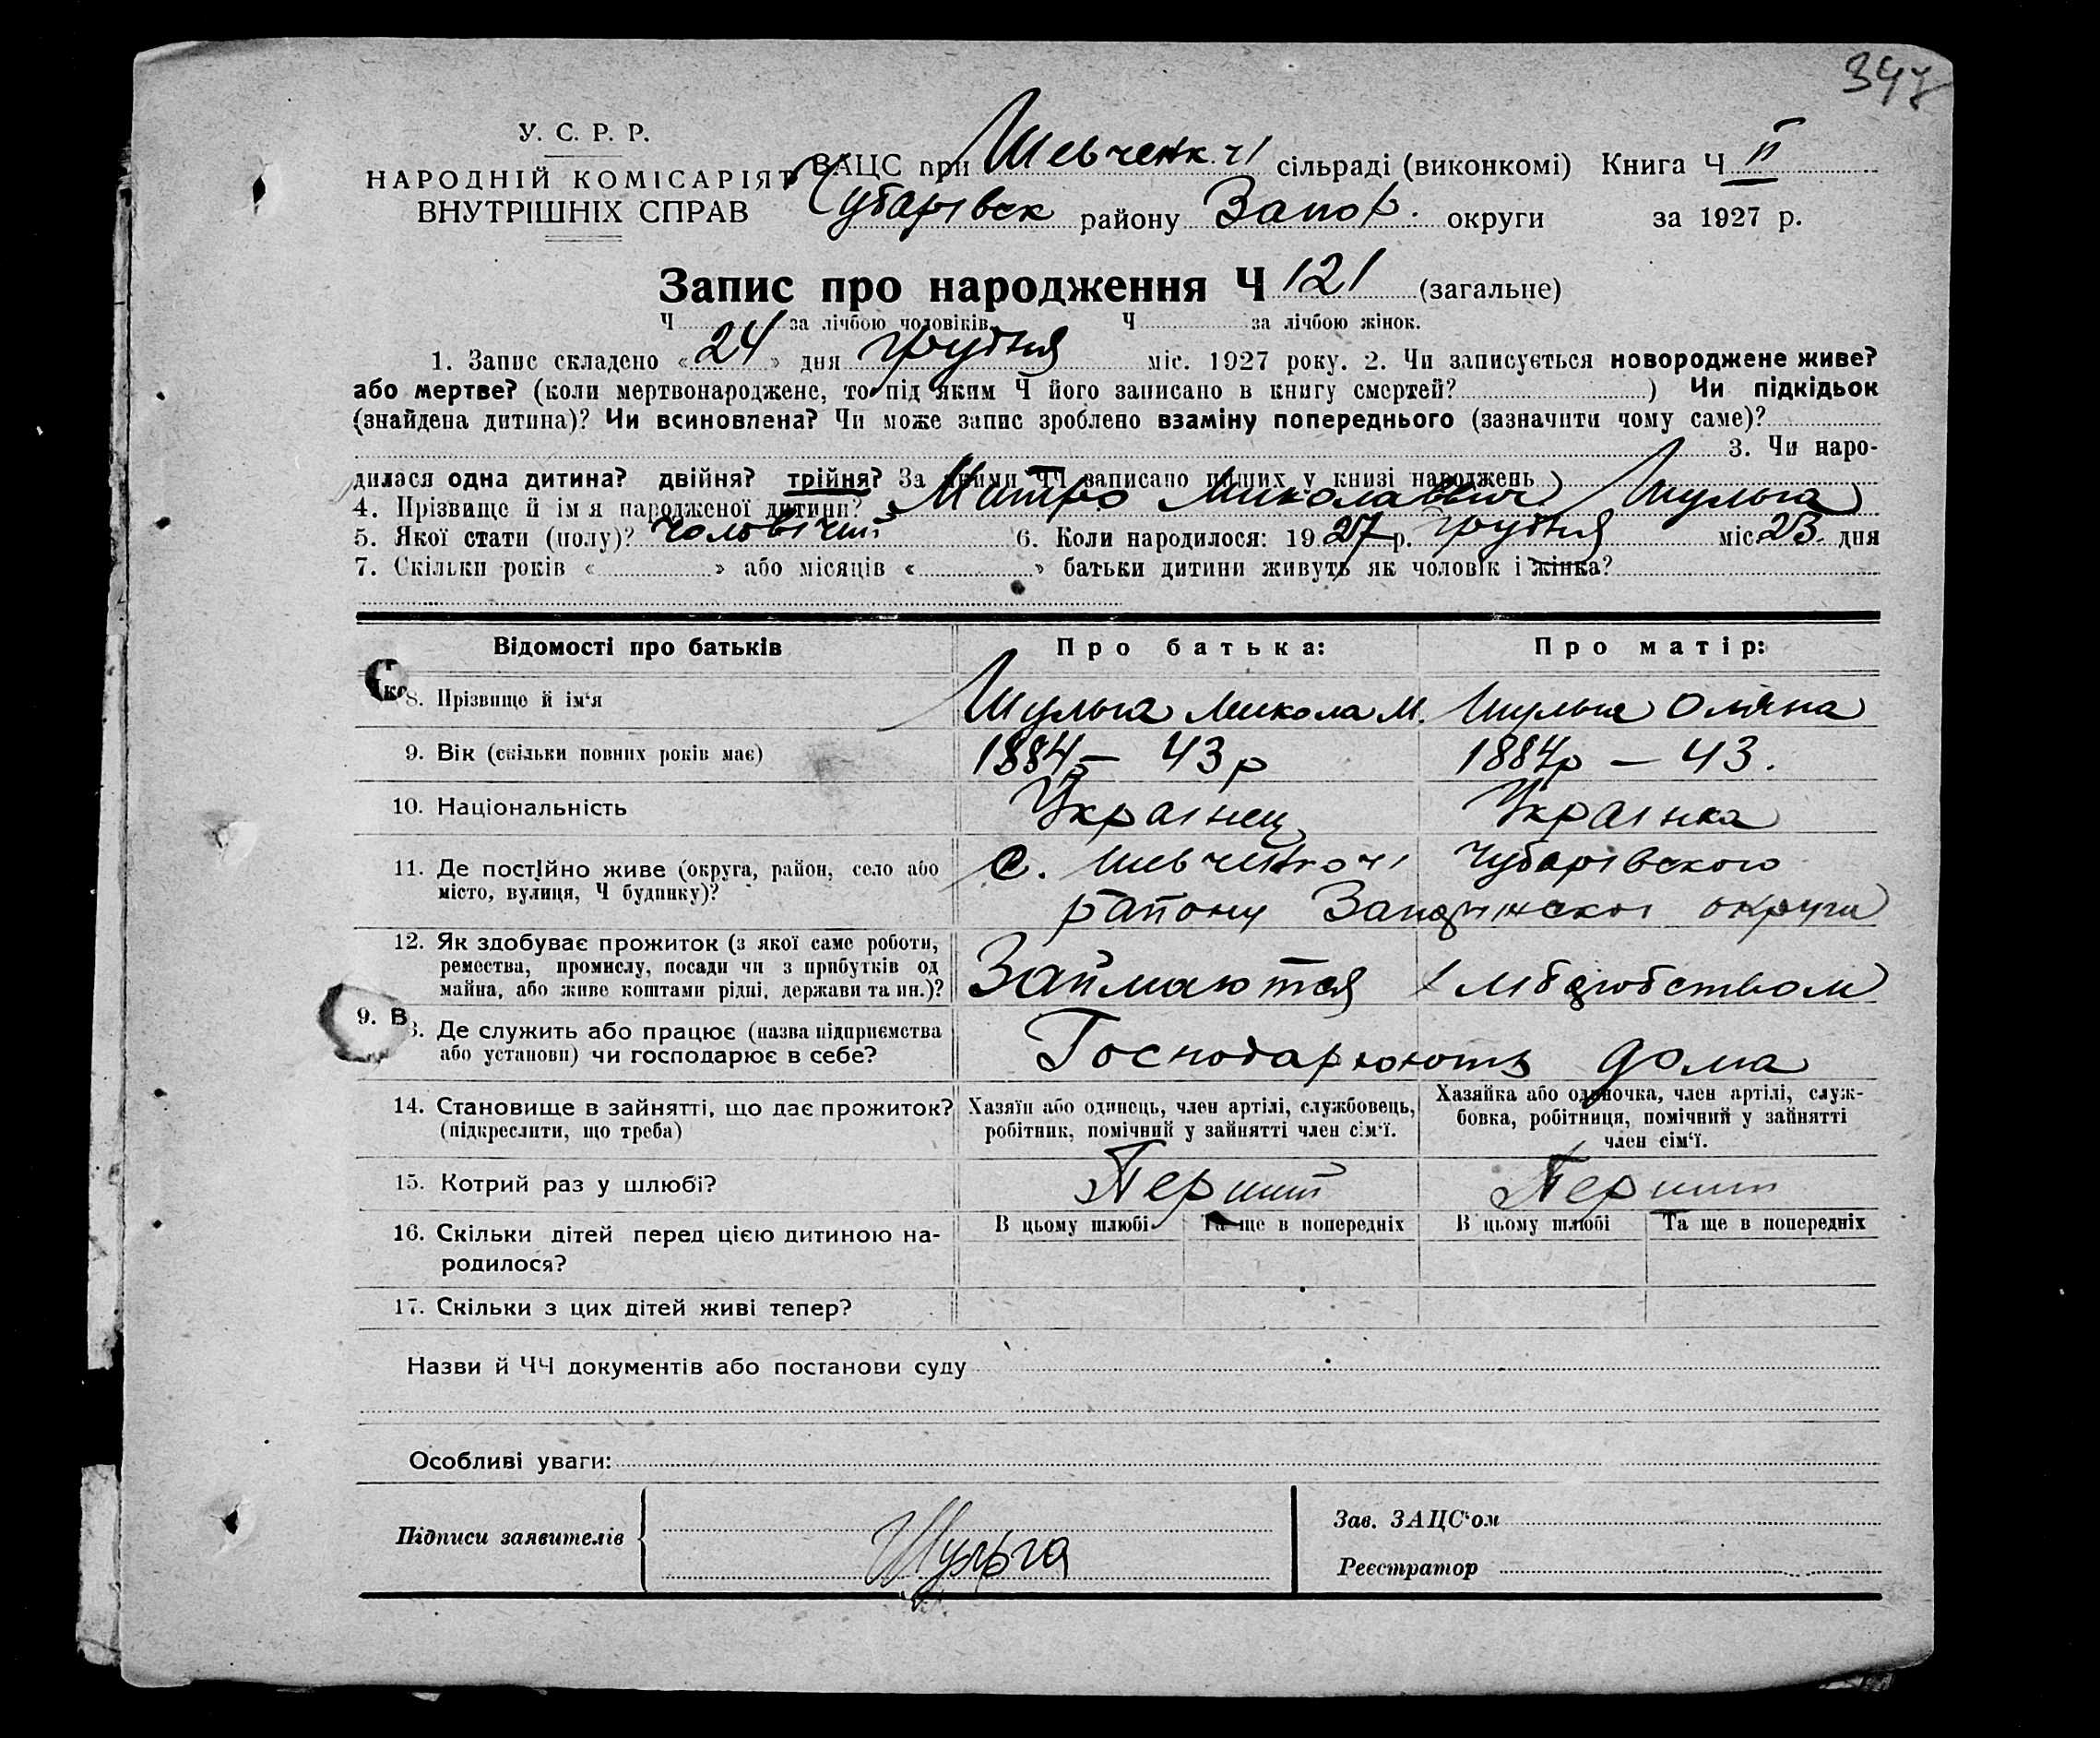 347
У. С. Р. Р.
НАРОДНІЙ КОМІСАРІЯТ
ВНУТРІШНІХ СПРАВ
ЗАЦС при Шевченк. сільраді (виконкомі) Книга Ч II
Чубарівск району Запор. округи за 1927 р.
Запис про народження Ч 121 (загальне)
Ч за лічбою чоловіків. Ч за лічбою жінок.
1. Запис складено « 24 » дня грудня міс. 1927 року. 2. Чи записується новороджене живе?
або мертве? (коли мертвонароджене, то під яким Ч його записано в книгу смертей? ) Чи підкідьок
(знайдена дитина)? Чи всиновлена? Чи може запис зроблено взаміну попереднього (зазначити чому саме)?
3. Чи наро-
дилася одна дитина? двійня? трійня? За якими ЧЧ записано инших у книзі народжень
4. Прізвище й ім'я народженої дитини? Митро Миколаєвич Шульга
5. Якої стати (полу)? чоловічий 6. Коли народилося: 1927 р. грудня міс. 23 дня
7. Скільки років « » або місяців « » батьки дитини живуть як чоловік і жінка?
Відомості про батьків Про батька: Про матір:
8. Прізвище й ім'я Шульга Микола М. Шульга Оляна
9. Вік (скільки повних років має) 1884р – 43р 1884р – 43.
10. Національність Украінец Украінка
11. Де постійно живе (округа, район, село або
місто, вулиця, Ч будинку)?
с. Чубарівского
району округи
12. Як здобуває прожиток (з якої саме роботи,
ремества, промислу, посади чи з прибутків од
майна, або живе коштами рідні, держави та ин.)?
Займаются
9. В
13. Де служить або працює (назва підприємства
або установи) чи господарює в себе?
Господарюють дома
14. Становище в зайнятті, що дає прожиток?
(підкреслити, що треба)
Хазяїн або одинець, член артілі, службовець,
робітник, помічний у зайнятті член сім'ї.
Хазяйка або одиночка, член артілі, служ-
бовка, робітниця, помічний у зайнятті
член сім'ї.
15. Котрий раз у шлюбі? Перший Перший
16. Скільки дітей перед цією дитиною на-
родилося?
В цьому шлюбі Та ще в попередніх В цьому шлюбі Та ще в попередніх
17. Скільки з цих дітей живі тепер?
Назви й ЧЧ документів або постанови суду
Особливі уваги:
Підписи заявителів
Шульга
Зав. ЗАЦС'ом
Реєстратор